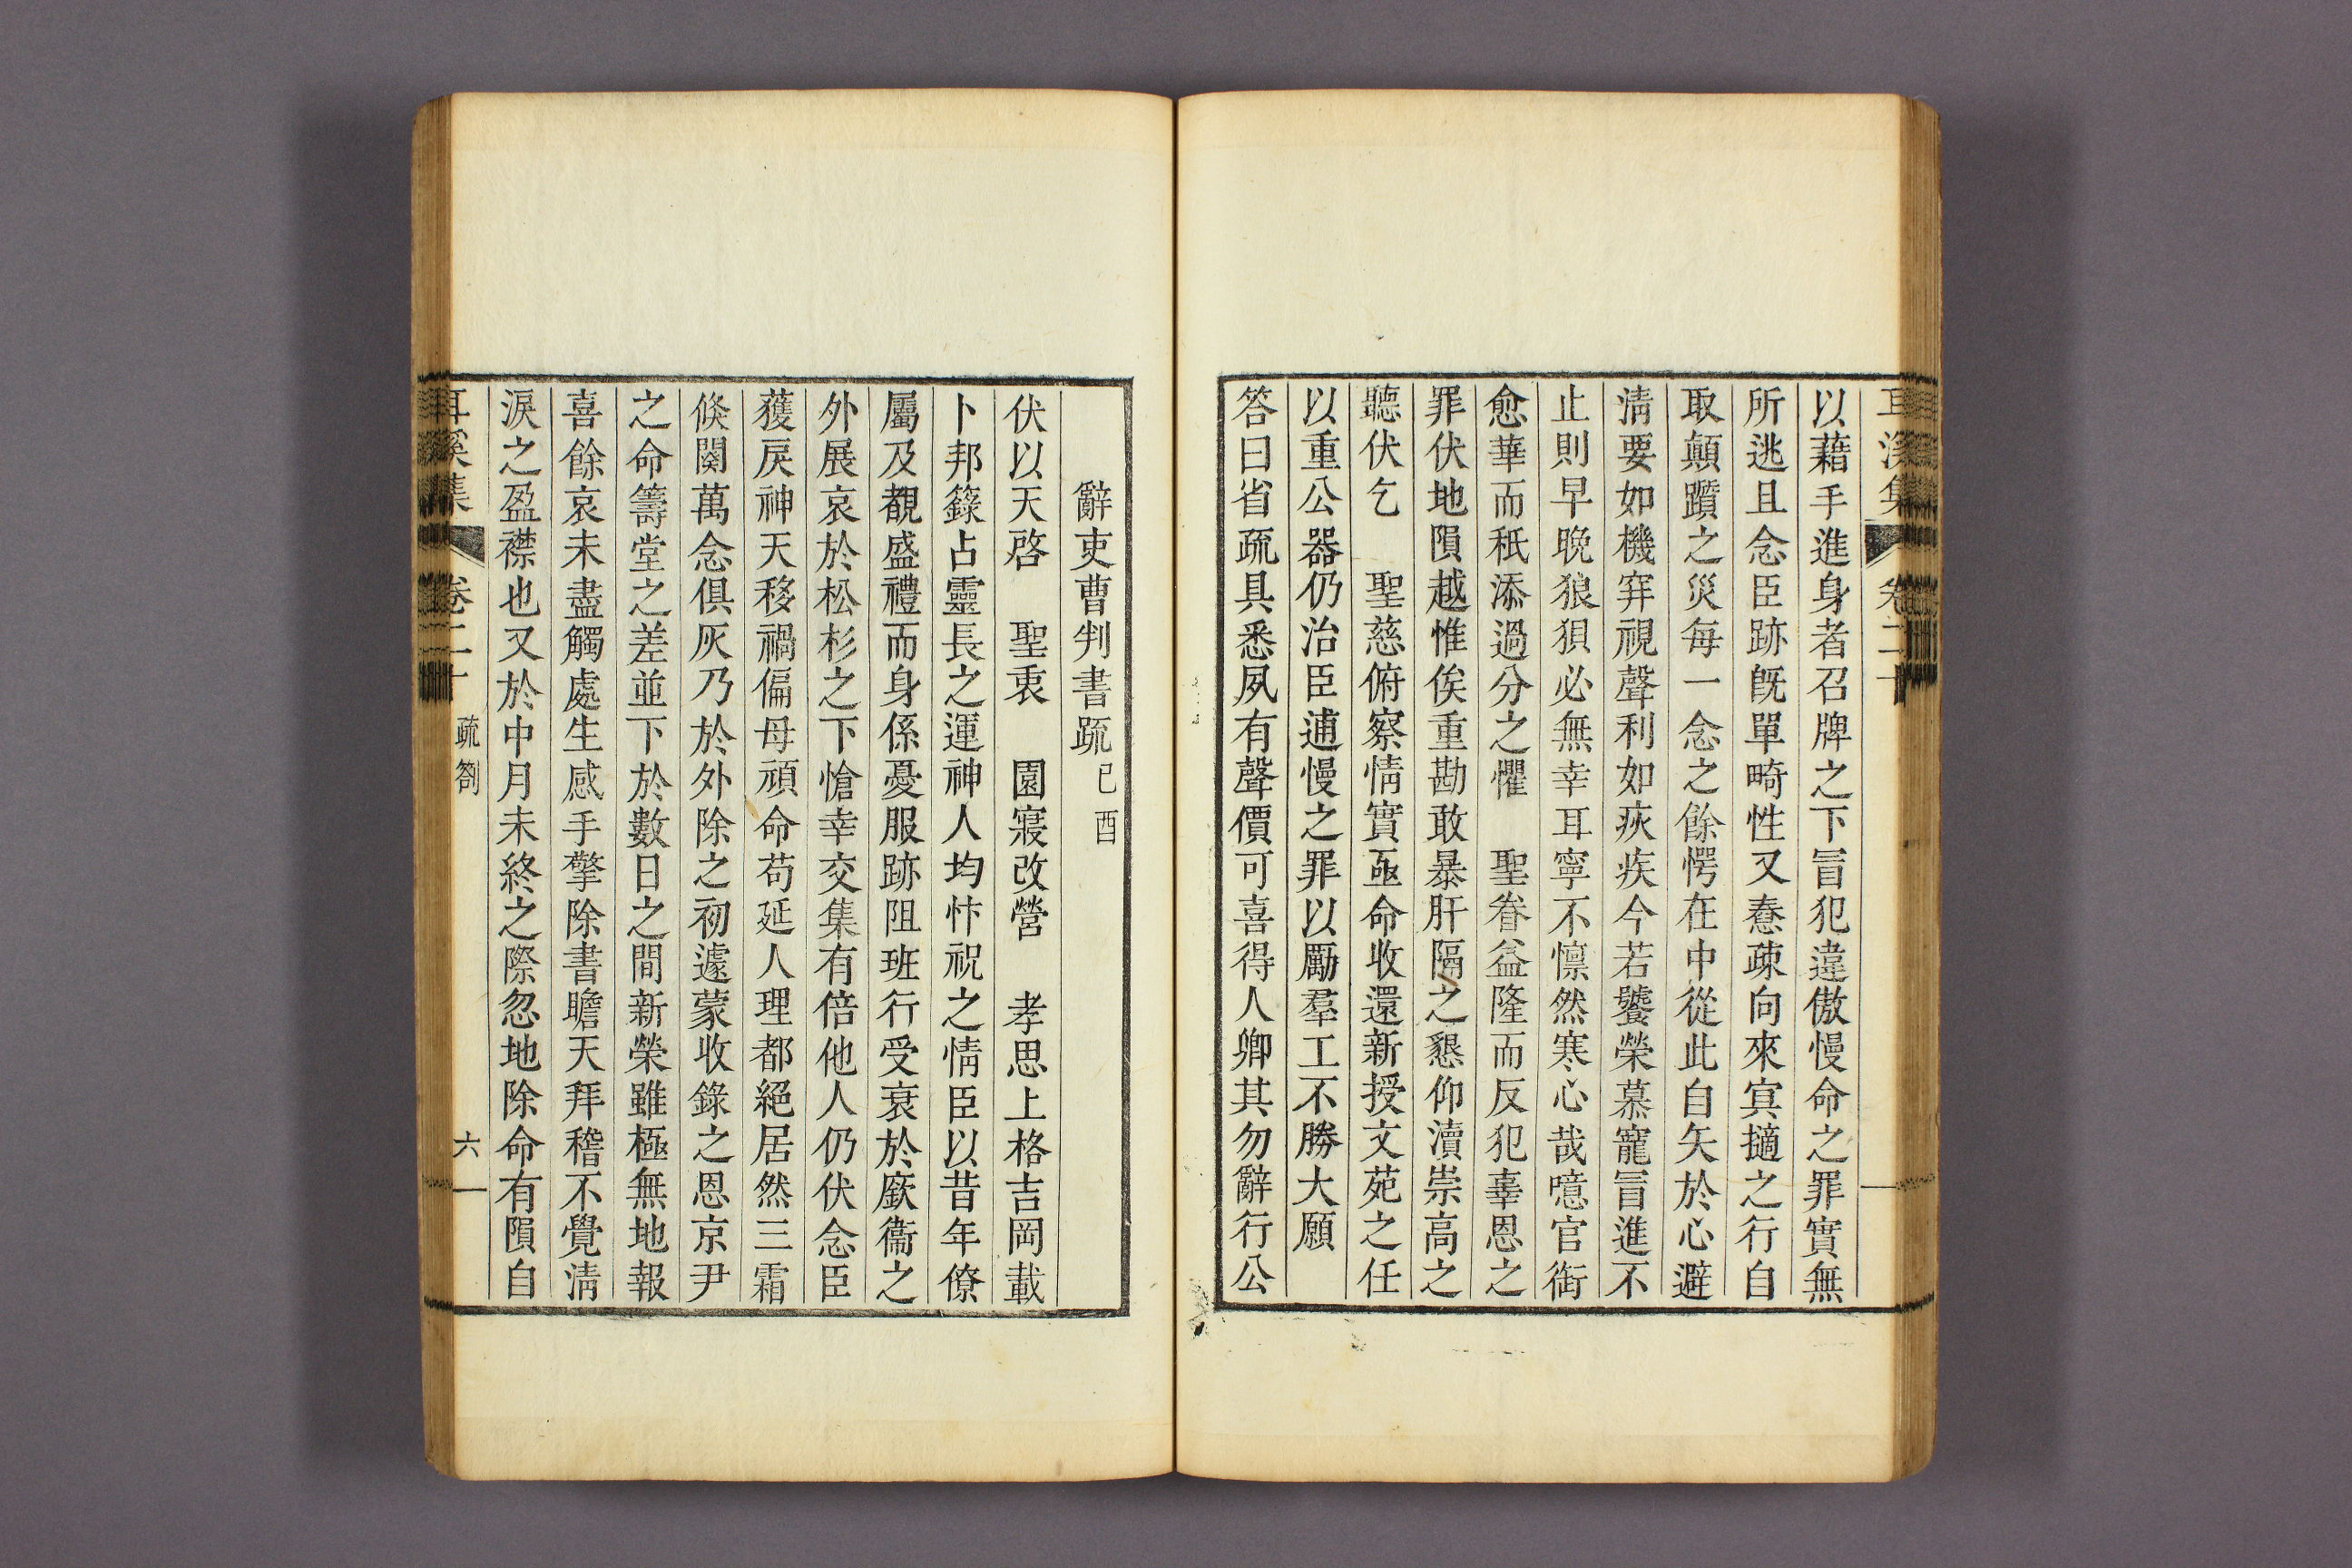 耳溪集 卷二十
以藉手進身者召牌之下冒犯違傲慢命之罪實無
所逃且念臣跡旣單畸性又惷疎向來寘擿之行自
取顛躓之災每一念之餘愕在中從此自矢於心避
淸要如機穽視聲利如疢疾今若饕榮慕寵冒進不
止則早晩狼狽必無幸耳寧不懍然寒心哉噫官銜
愈華而秪添過分之懼 聖眷益隆而反犯辜恩之
罪伏地隕越惟俟重勘敢暴肝膈之懇仰瀆崇高之
聽伏乞 聖慈俯察情實亟命收還新授文苑之任
以重公器仍治臣逋慢之罪以勵羣工不勝大願
答曰省疏具悉夙有聲價可喜得人卿其勿辭行公
辭吏曹判書疏 己酉
伏以天啓 聖衷 園寢改營 孝思上格吉岡載
卜邦籙占靈長之運神人均忭祝之情臣以昔年僚
屬及覩盛禮而身係憂服跡阻班行受衰於廞衞之
外展哀於松杉之下愴幸交集有倍他人仍伏念臣
獲戾神天移禍偏母頑命苟延人理都絕居然三霜
倏闋萬念俱灰乃於外除之初遽蒙收錄之恩京尹
之命籌堂之差並下於數日之間新榮雖極無地報
喜餘哀未盡觸處生感手擎除書瞻天拜稽不覺淸
淚之盈襟也又於中月未終之際忽地除命有隕自
耳溪集 卷二十 疏箚 六